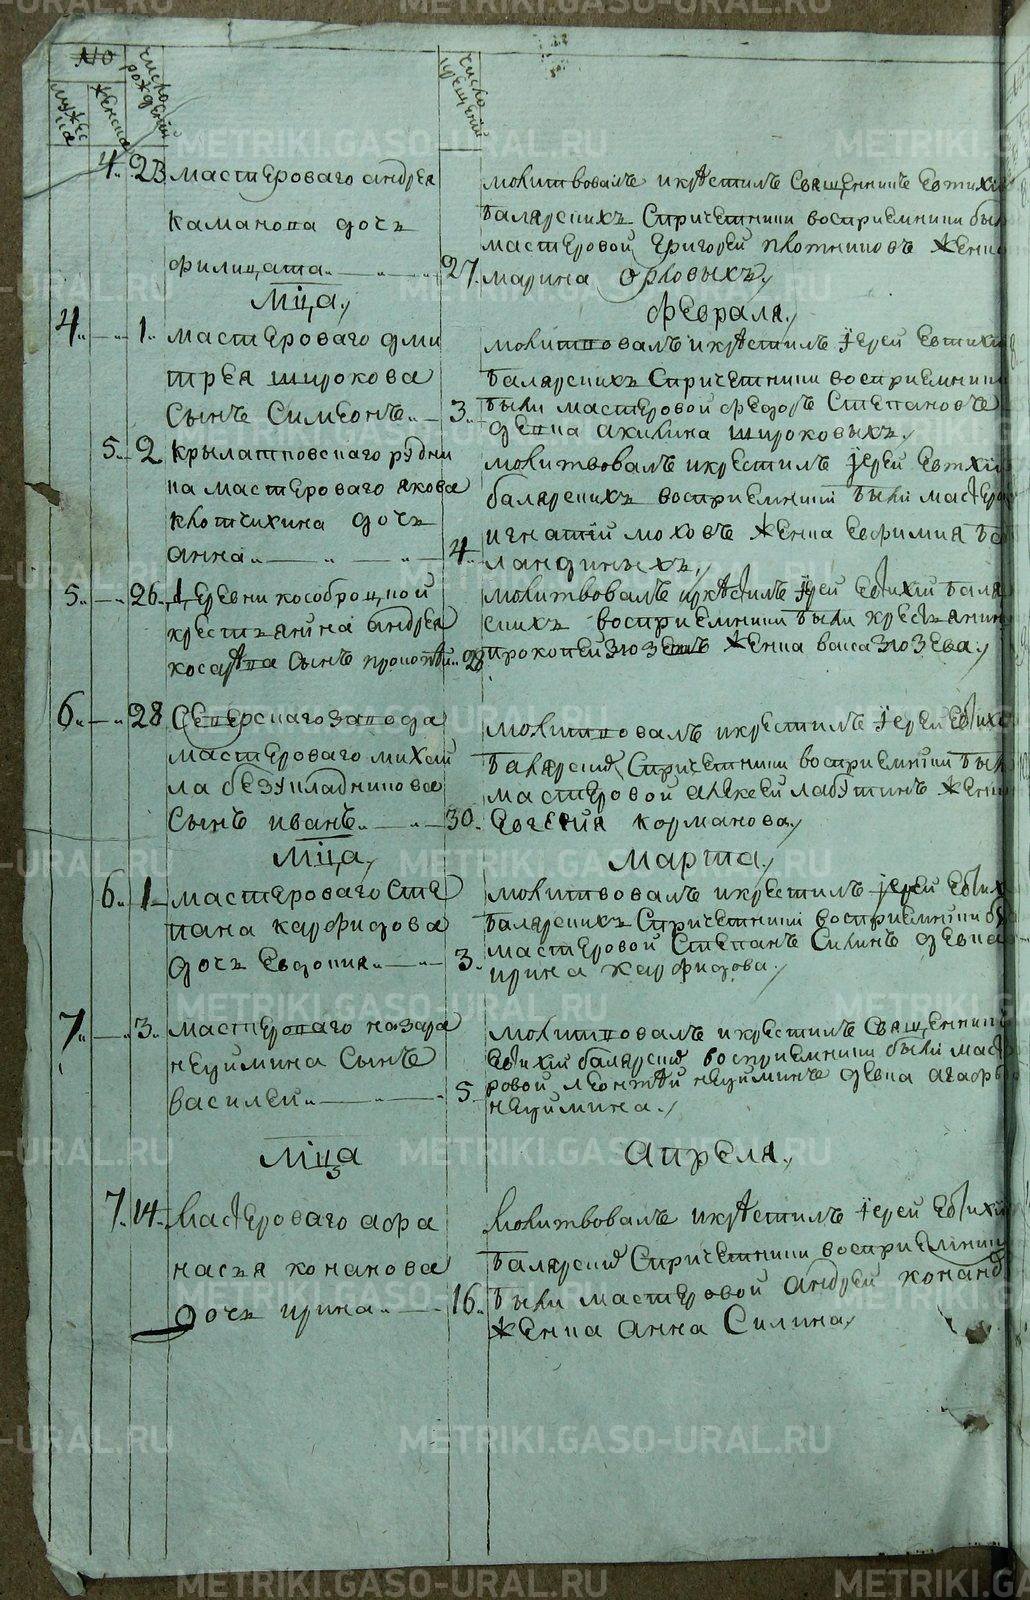 No
мужеска
женска
число рождений
число крещений
4. 23 мастероваго андрея
камакова дочь
филицата
27 молитвовалъ и крѣстилъ Священникъ Евтихій
балярскихъ Спричетники восприемники бы
мастеровой григорей плотниковъ женка
марина Орловыхъ
мцⷭ҇а февраля
4 1 мастероваго дми
трея широкова
Сынъ Симеонъ
3 молитвовалъ и крѣстилъ іерей Евтихи
балярскихъ Спричетники восприемники
были мастеровой федоръ Степановъ
девка акилина широковыхъ
5 2 Крылатковскаго рудни
ка мастероваго якова
клотчихина дочь
анна
4 молитвовалъ и крестилъ іерей Евтихій
балярскихъ восприемники были масте
игнатей моховъ женка Евфимия ба
ландиныхъ
5 26 деревни кособродцкой
крестьянина андрея
Сынъ
28 молитвовалъ и крѣстилъ іерей Евтихій баля
скихъ восприемники были крестьянин
прокопей зюзевъ женка васса зюзева
6 28 Северскаго завода
мастероваго михаи
ла безукладникова
Сынъ иванъ
30 молитвовалъ и крестилъ іерей Евтихи
балярскихъ Спричетники восприемники бы
мастеровой алексей лабутинъ женк
Евгения корманова
мцⷭ҇а марта
6 1 мастероваго Сте
пана карфидова
дочь Евдокия
3 молитвовалъ и крестилъ іерей Евтих
балярскихъ Спричетники восприемники бы
мастеровой Степанъ Силинъ девка
ирина карфидова
7 3 мастероваго назара
неуймина Сынъ
василеи
5 молитвовалъ и крестилъ Священник
Евтихій балярский восприемники были масте
ровой леонтей неуйминъ девка агафь
неуймина
мцⷭ҇а Апреля
7 14 Мастероваго афа
насья конанова
дочь ирина
16 Молитвовалъ и крѣстилъ іерей Евтихи
балярский Спричетники восприемники
были мастеровой андрей конано
женка анна Силина
METRIKI.GASO-URAL.RU